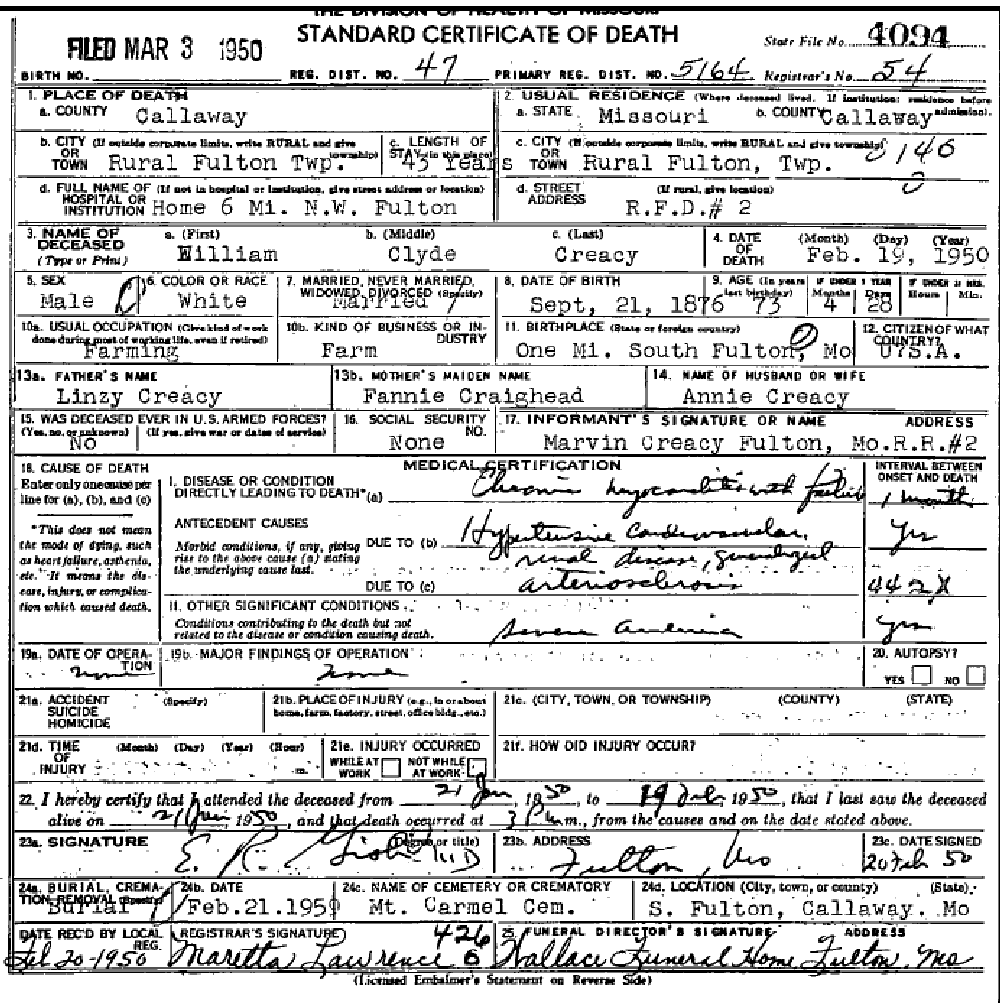 THE DIVISION OF HEALTH OF MISSOURI
FILED MAR 3 1950 STANDARD CERTIFICATE OF DEATH State File No. 4094
BIRTH NO. REG. DIST. NO. 47 PRIMARY REG. DIST. NO. 5164 Registrar's No. 54
1. PLACE OF DEATH
a. COUNTY Callaway
2. USUAL RESIDENCE (Where deceased lived. If institution: residence before admission).
a. STATE Missouri b. COUNTY Callaway
b. CITY (If outside corporate limits, write RURAL and give township) OR TOWN Rural Fulton Twp.
c. LENGTH OF STAY (in this place) 45 Years
c. CITY (If outside corporate limits, write RURAL and give township) OR TOWN Rural Fulton, Twp.
d. FULL NAME OF (If not in hospital or institution, give street address or location) HOSPITAL OR INSTITUTION Home 6 Mi. N.W. Fulton
d. STREET ADDRESS (If rural, give location) R.F.D.# 2
3. NAME OF DECEASED (Type or Print) a. (First) William b. (Middle) Clyde c. (Last) Creacy
4. DATE OF DEATH (Month) (Day) (Year) Feb. 19, 1950
5. SEX Male
6. COLOR OR RACE White
7. MARRIED, NEVER MARRIED, WIDOWED, DIVORCED (Specify) Married
8. DATE OF BIRTH Sept, 21, 1876
9. AGE (In years last birthday) 73 IF UNDER 1 YEAR Months 4 Days 28 IF UNDER 24 HRS. Hours Min.
10a. USUAL OCCUPATION (Give kind of work done during most of working life, even if retired) Farming
10b. KIND OF BUSINESS OR INDUSTRY Farm
11. BIRTHPLACE (State or foreign country) One Mi. South Fulton, Mo
12. CITIZEN OF WHAT COUNTRY? U.S.A.
13a. FATHER'S NAME Linzy Creacy
13b. MOTHER'S MAIDEN NAME Fannie Craighead
14. NAME OF HUSBAND OR WIFE Annie Creacy
15. WAS DECEASED EVER IN U.S. ARMED FORCES? (Yes, no, or unknown) (If yes, give war or dates of service) No
16. SOCIAL SECURITY NO. None
17. INFORMANT'S SIGNATURE OR NAME ADDRESS Marvin Creacy Fulton, Mo.R.R.#2
18. CAUSE OF DEATH
Enter only one cause per line for (a), (b), and (c)
*This does not mean the mode of dying, such as heart failure, asthenia, etc. It means the disease, injury, or complication which caused death.
MEDICAL CERTIFICATION
INTERVAL BETWEEN ONSET AND DEATH
I. DISEASE OR CONDITION DIRECTLY LEADING TO DEATH* (a) Chronic myocarditis with failure 1 month
ANTECEDENT CAUSES
Morbid conditions, if any, giving rise to the above cause (a) stating the underlying cause last.
DUE TO (b) Hypertensive Cardiovascular, renal disease, generalized yrs
DUE TO (c) arteriosclerosis 442X
II. OTHER SIGNIFICANT CONDITIONS
Conditions contributing to the death but not related to the disease or condition causing death.
Severe anemia yrs
19a. DATE OF OPERATION none
19b. MAJOR FINDINGS OF OPERATION none
20. AUTOPSY? YES NO
21a. ACCIDENT SUICIDE HOMICIDE (Specify)
21b. PLACE OF INJURY (e.g., in or about home, farm, factory, street, office bldg., etc.)
21c. (CITY, TOWN, OR TOWNSHIP) (COUNTY) (STATE)
21d. TIME OF INJURY (Month) (Day) (Year) (Hour) m.
21e. INJURY OCCURRED WHILE AT WORK NOT WHILE AT WORK
21f. HOW DID INJURY OCCUR?
22. I hereby certify that I attended the deceased from 21 Jan, 1950, to 19 Feb, 1950, that I last saw the deceased
alive on 21 Jan, 1950, and that death occurred at 3 P m., from the causes and on the date stated above.
23a. SIGNATURE (Degree or title) E. R. MD
23b. ADDRESS Fulton, Mo
23c. DATE SIGNED 20 Feb 50
24a. BURIAL, CREMATION, REMOVAL (Specify) Burial
24b. DATE Feb.21.1950
24c. NAME OF CEMETERY OR CREMATORY Mt. Carmel Cem.
24d. LOCATION (City, town, or county) (State) S. Fulton, Callaway. Mo
DATE REC'D BY LOCAL REG. Feb 20-1950
REGISTRAR'S SIGNATURE Maretta Lawrence 426
25. FUNERAL DIRECTOR'S SIGNATURE ADDRESS Wallace Funeral Home Fulton, Mo
(Licensed Embalmer's Statement on Reverse Side)